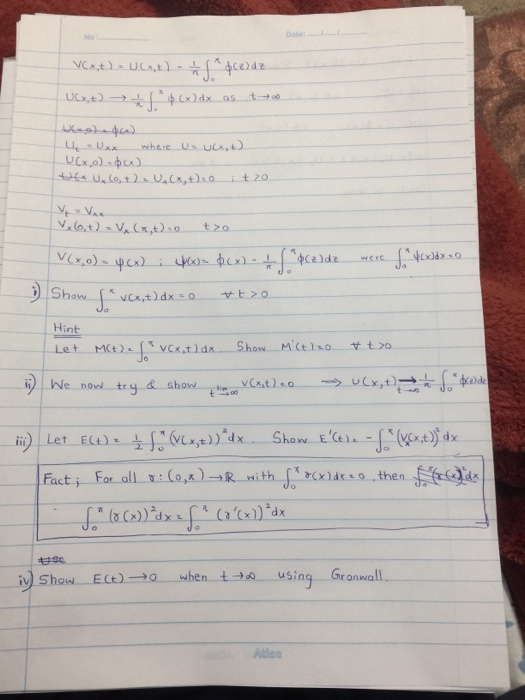 No:
Date:
V(x,t) = U(x,t) - 1/π ∫₀^π φ(z)dz
U(x,t) → 1/π ∫₀^π φ(x)dx as t→∞
U(x,0) = φ(x)
Ut = Uxx where U = U(x,t)
U(x,0) = φ(x)
Ux(0,t) = Ux(π,t) = 0 ; t>0
Vt = Vxx
Vx(0,t) = Vx(π,t) = 0 t>0
V(x,0) = ψ(x) ; ψ(x) = φ(x) - 1/π ∫₀^π φ(z)dz were ∫₀^π ψ(x)dx = 0
i) Show ∫₀^π v(x,t)dx = 0 ∀t>0
Hint
Let M(t) = ∫₀^π V(x,t)dx. Show M'(t)=0 ∀t>0
ii) We now try & show lim t→∞ V(x,t) = 0 ⟹ U(x,t) → t→∞ 1/π ∫₀^π φ(z)dz
iii) Let E(t) = 1/2 ∫₀^π (V(x,t))² dx. Show E'(t) = -∫₀^π (Vx(x,t))² dx
Fact; For all γ: (0,π) → ℝ with ∫₀^π γ(x)dx = 0, then
∫₀^π (γ(x))² dx ≤ ∫₀^π (γ'(x))² dx
Use
iv) Show E(t) → 0 when t→∞ using Gronwall.
Atlas